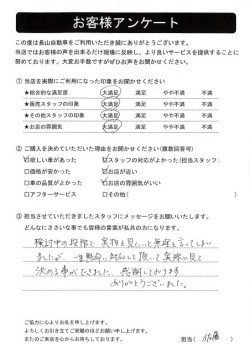 お客様アンケート
この度は長山自動車をご利用いただき誠にありがとうございます。
当店ではお客様の声を出来るだけ現場に反映し、より良いサービスを提供することに
努めております。大変お手数ですがぜひお声をお聞かせください。
① 当店を実際にご利用になった印象をお聞かせください
★総合的な満足度 大満足 満足 やや不満 不満
★販売スタッフの印象 大満足 満足 やや不満 不満
★その他スタッフの印象 大満足 満足 やや不満 不満
★お店の雰囲気 大満足 満足 やや不満 不満
② ご購入を決めていただいた理由をお聞かせください(複数回答可)
□欲しい車があった □スタッフの対応がよかった(担当スタッフ:
□価格が安かった □お店が近い
□車の品質がよかった □お店の雰囲気がいい
□アフターサービス □その他( )
③ 担当させていただきましたスタッフにメッセージをお願いいたします。
どんなにささいな事でも皆様の言葉が私共の力になります。
検討中の段階で 実物を見たいと無理を言ってしまい
ましたが、一生懸命に対応して頂いて実際に見て
決める事ができました。感謝しております
ありがとうございました。
ご協力に心よりお礼を申し上げます。
よろしくお引き立てご愛顧のほどお願い申し上げます。
またのご来店を心からお待ちしております。
担当( 佐藤 )